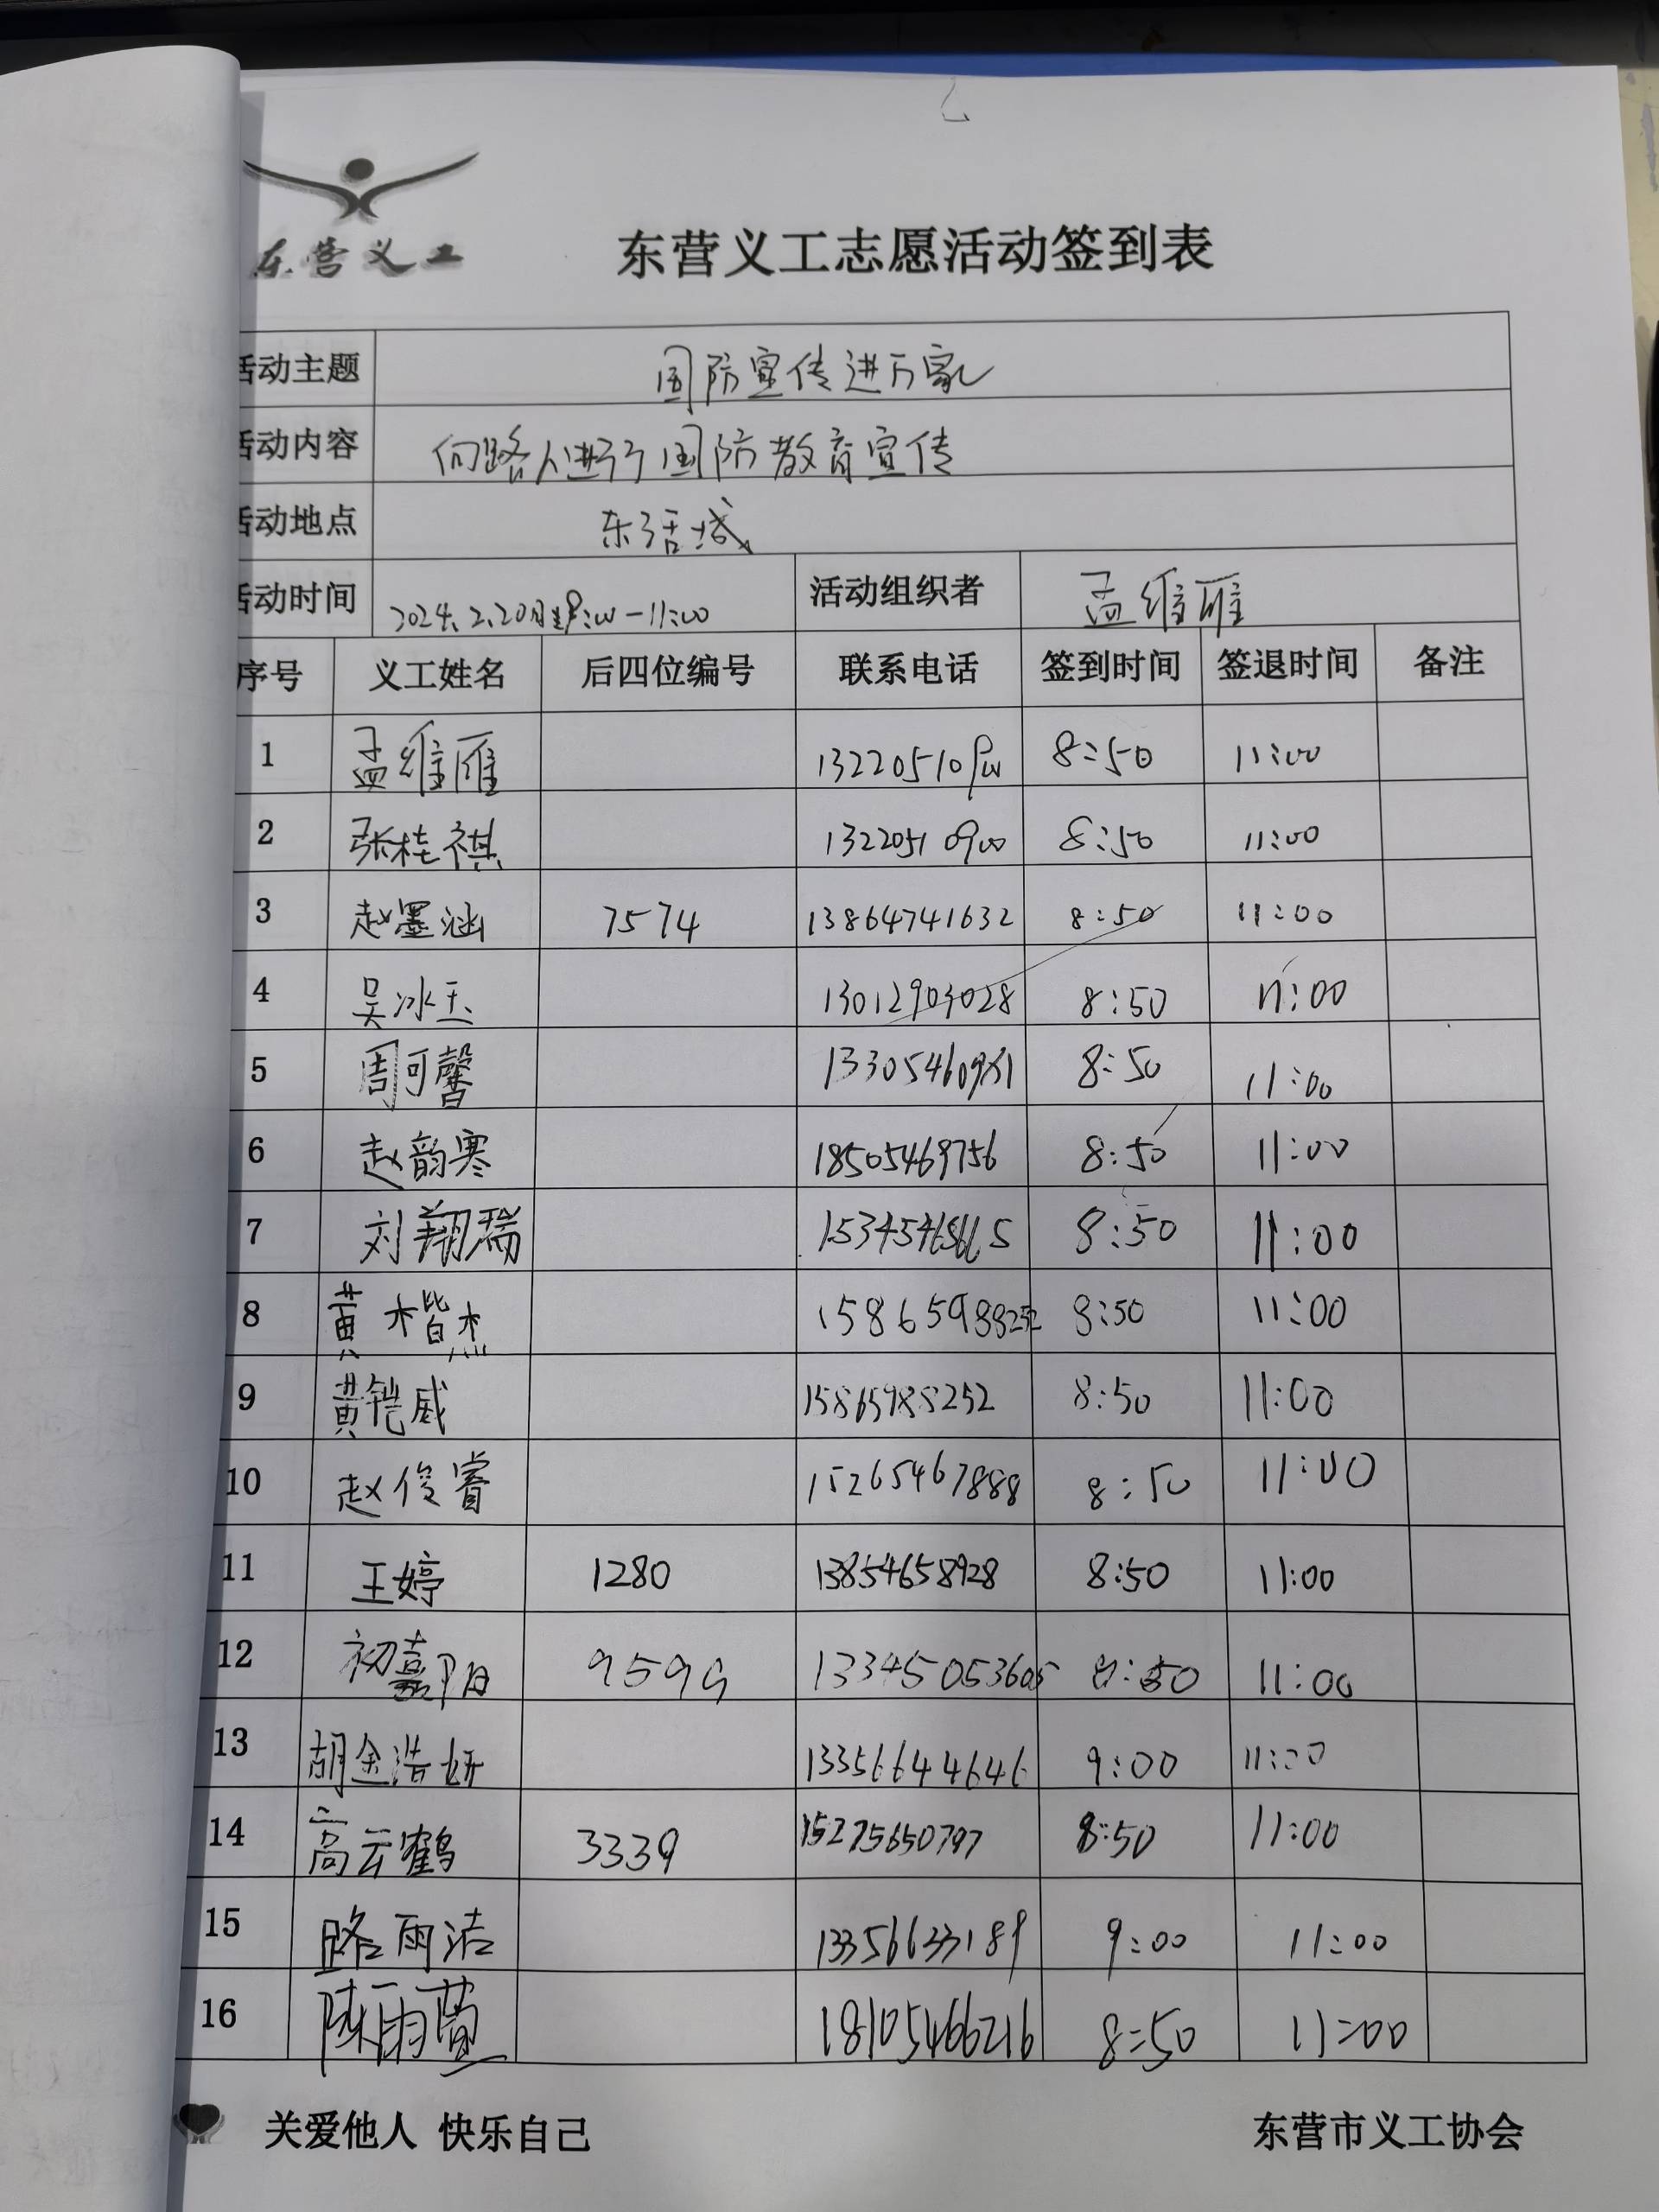 东营义工
东营义工志愿活动签到表
活动主题 国防宣传进万家
活动内容 向路人进行国防教育宣传
活动地点 东活城
活动时间 2024.2.20 -11:00 活动组织者 孟维雁
序号 义工姓名 后四位编号 联系电话 签到时间 签退时间 备注
1 孟维雁 8:50 11:00
2 张桂祺 13220510900 8:50 11:00
3 赵墨涵 7574 13864741632 8:50 11:00
4 吴冰玉 13012903028 8:50 11:00
5 周可馨 8:50 11:00
6 赵韵寒 18505469756 8:50 11:00
7 刘翔瑞 8:50 11:00
8 黄楷杰 15865988252 8:50 11:00
9 黄铠威 15865988252 8:50 11:00
10 赵俊睿 15265467888 8:50 11:00
11 王婷 1280 13854658928 8:50 11:00
12 初嘉阳 9599 13345053605 8:50 11:00
13 胡金浩妍 13356644646 9:00 11:00
14 高云鹤 3339 15275650797 8:50 11:00
15 路雨洁 13356633189 9:00 11:00
16 陈雨萱 18105466216 8:50 11:00
关爱他人 快乐自己 东营市义工协会